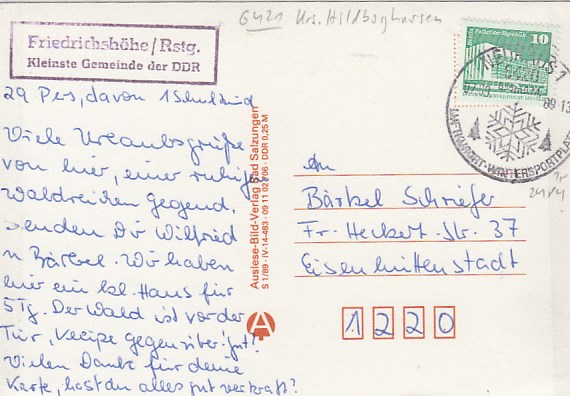 6421 Krs. Hildburghausen
Friedrichshöhe/Rstg.
Kleinste Gemeinde der DDR
29 Pers, davon 1 Schulkind
Viele Urlaubsgrüße
von hier, einer ruhigen
waldreichen Gegend,
senden Dir Wilfried
u Bärbel. Wir haben
hier ein kl. Haus für
5 Tg. Der Wald ist vor der
Tür, Kneipe gegenüber! gut!
Vielen Dank für deine
Karte, hast du alles gut verkraft?
Auslese-Bild-Verlag Bad Salzungen
S 1/89 · IV-14-483 · 09 11 02 · DDR 0,25 M
A
10
NEUHAUS 1
89-13
WINTERSPORTPLATZ
An
Bärbel Schriefer
Fr.-Heckert-Str. 37
Eisenhüttenstadt
1220